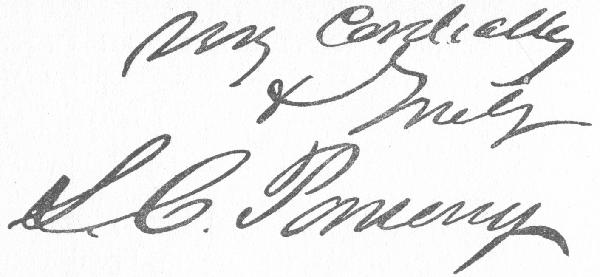 Very Cordially
& Truly
S. C. Pomeroy